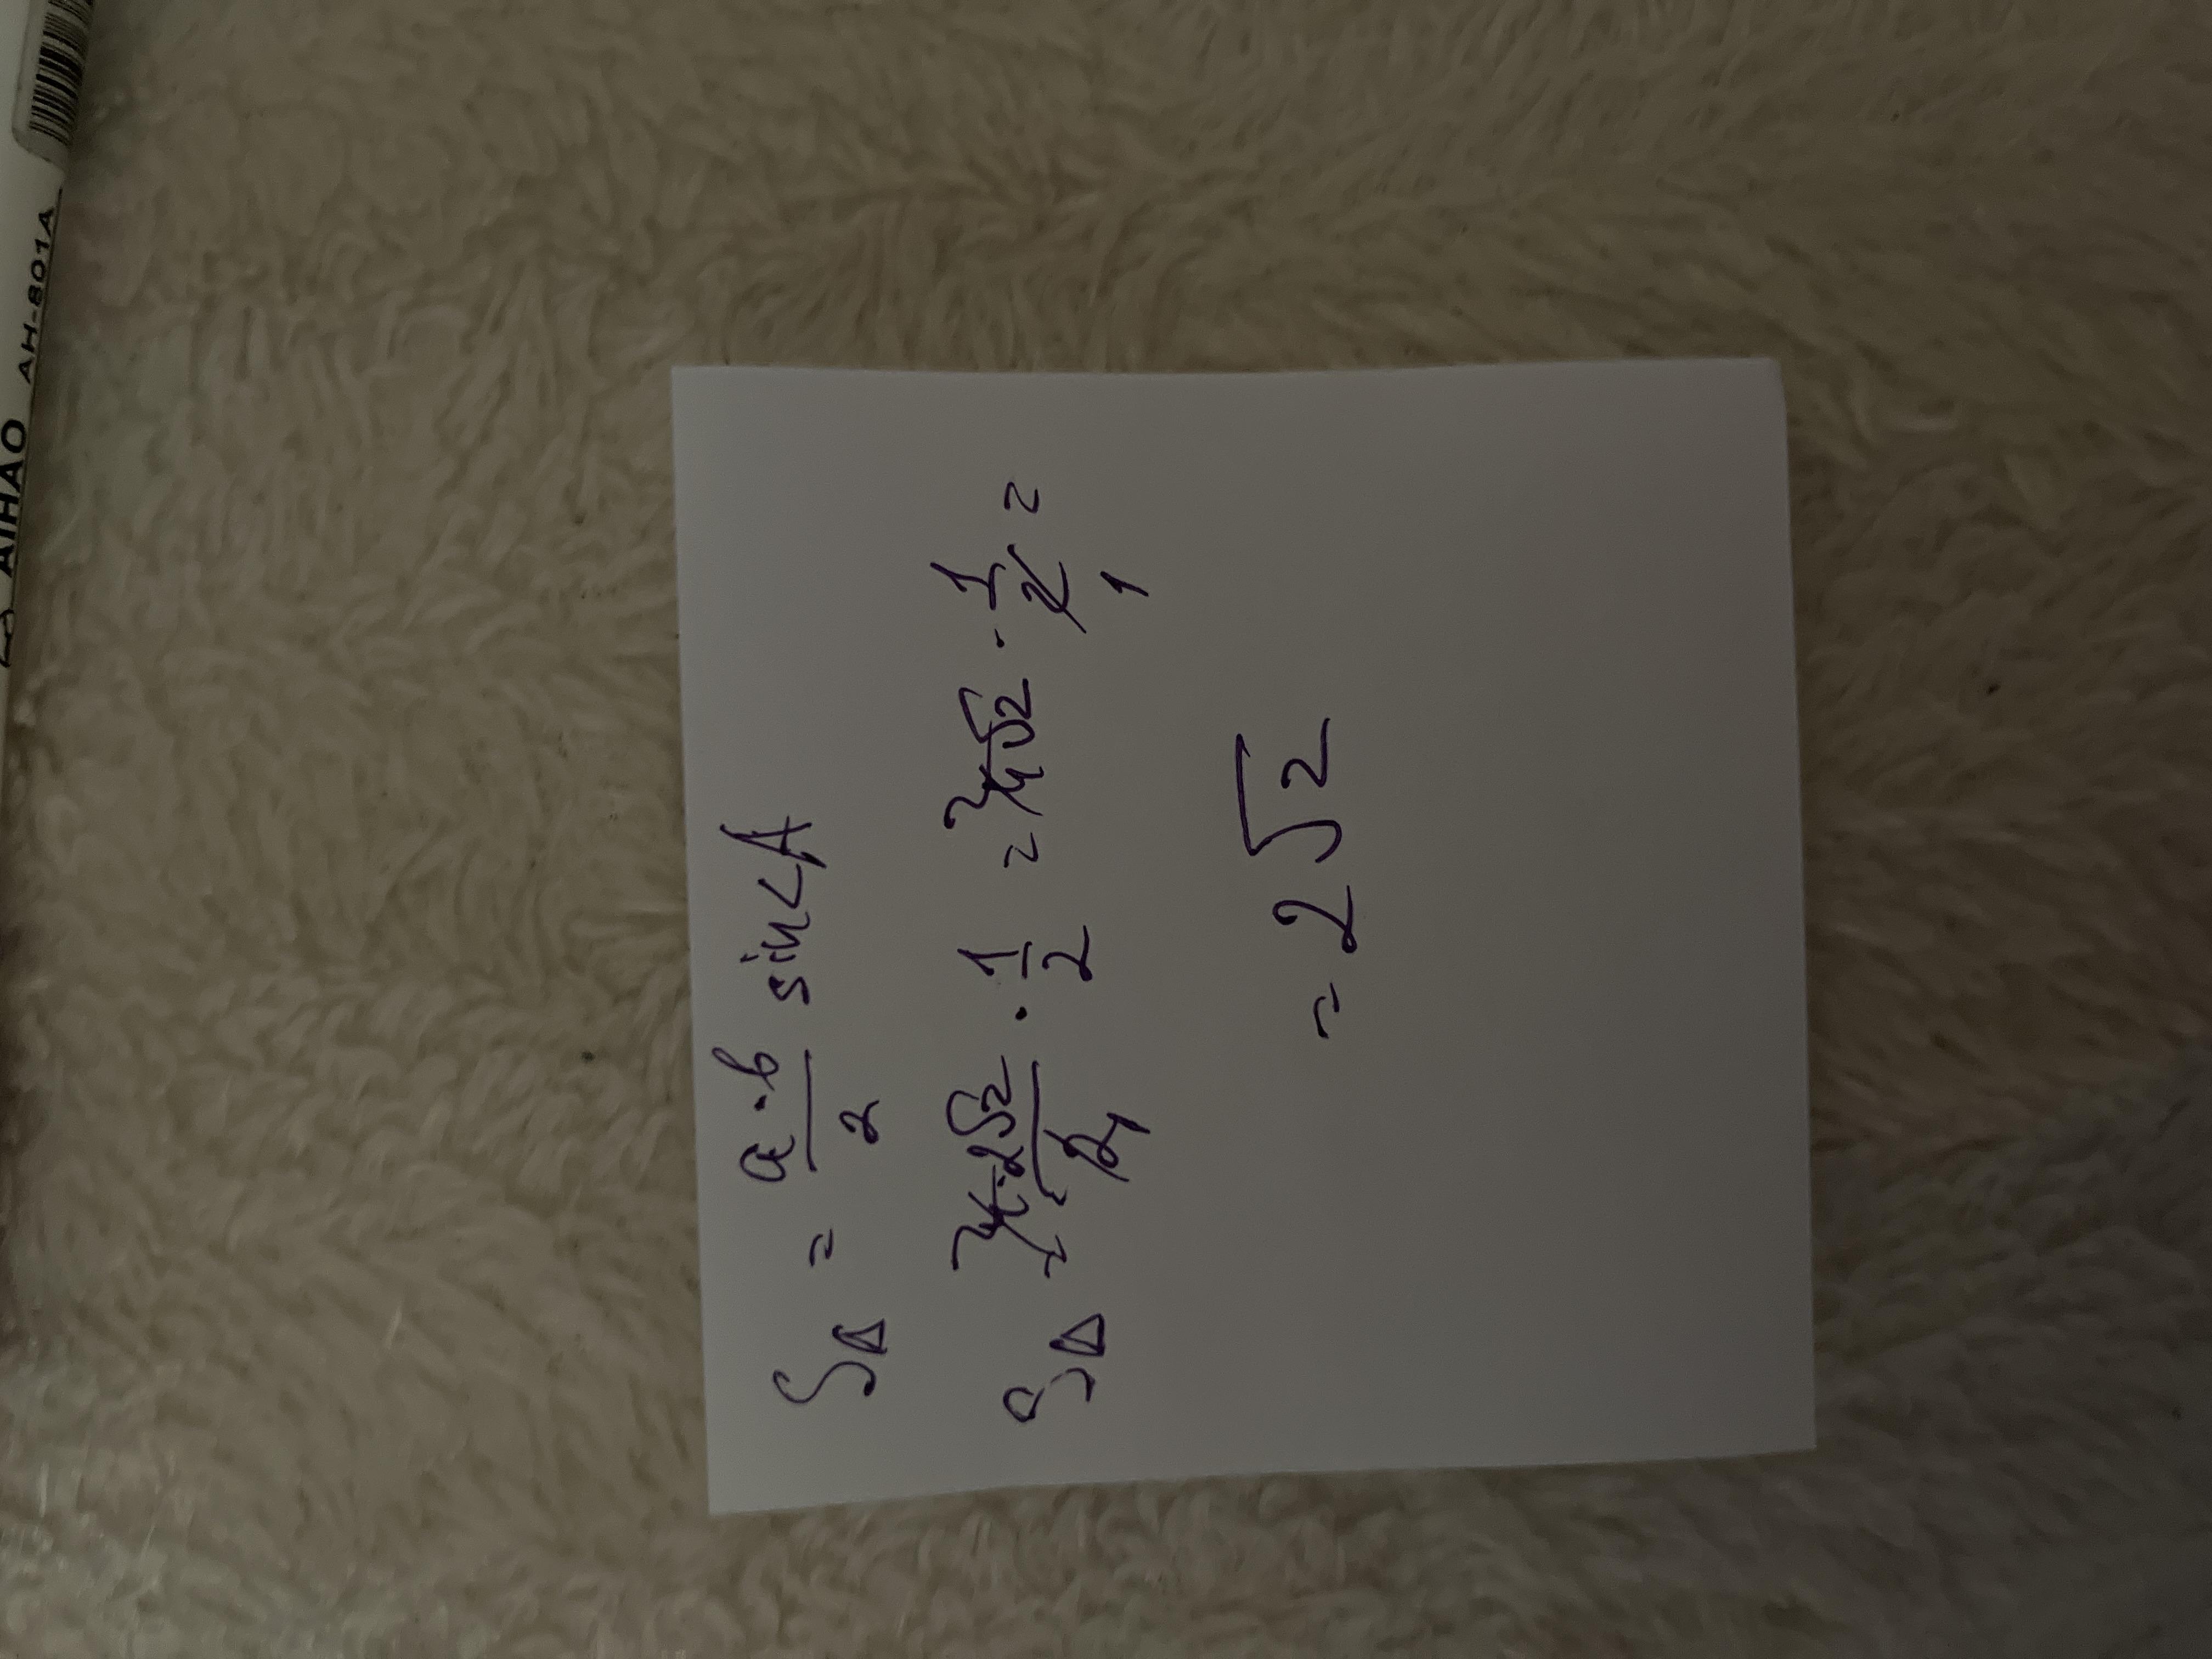 AIHAO AH-801A
S△ = a·b/2 sin<A
S△ = 4·2√2/2 · 1/2 = 4√2 · 1/2 =
= 2√2